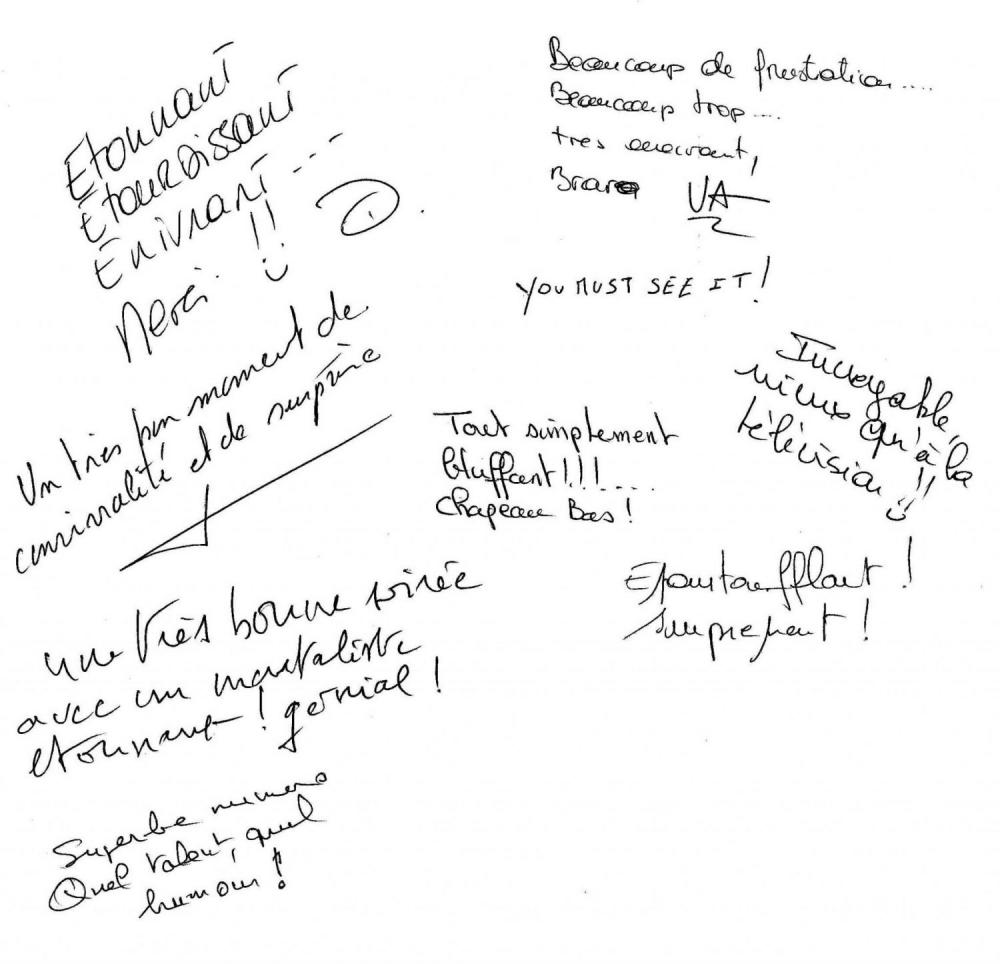 Etonnant
Etourdissant
Enivrant...
Merci !!
Beaucoup de frustation....
Beaucoup trop....
tres
Bravo
VA
YOU MUST SEE IT!
Un très bon moment de
convivialité et de surprise
Incroyable,
mieux qu'à la
télévision !!
Tout simplement
bluffant!!!....
Chapeau Bas!
Epoustoufflant !
surprenant !
une très bonne soirée
avec un mentaliste
etonnant ! génial !
Superbe numero
Quel talent, quel
humour !